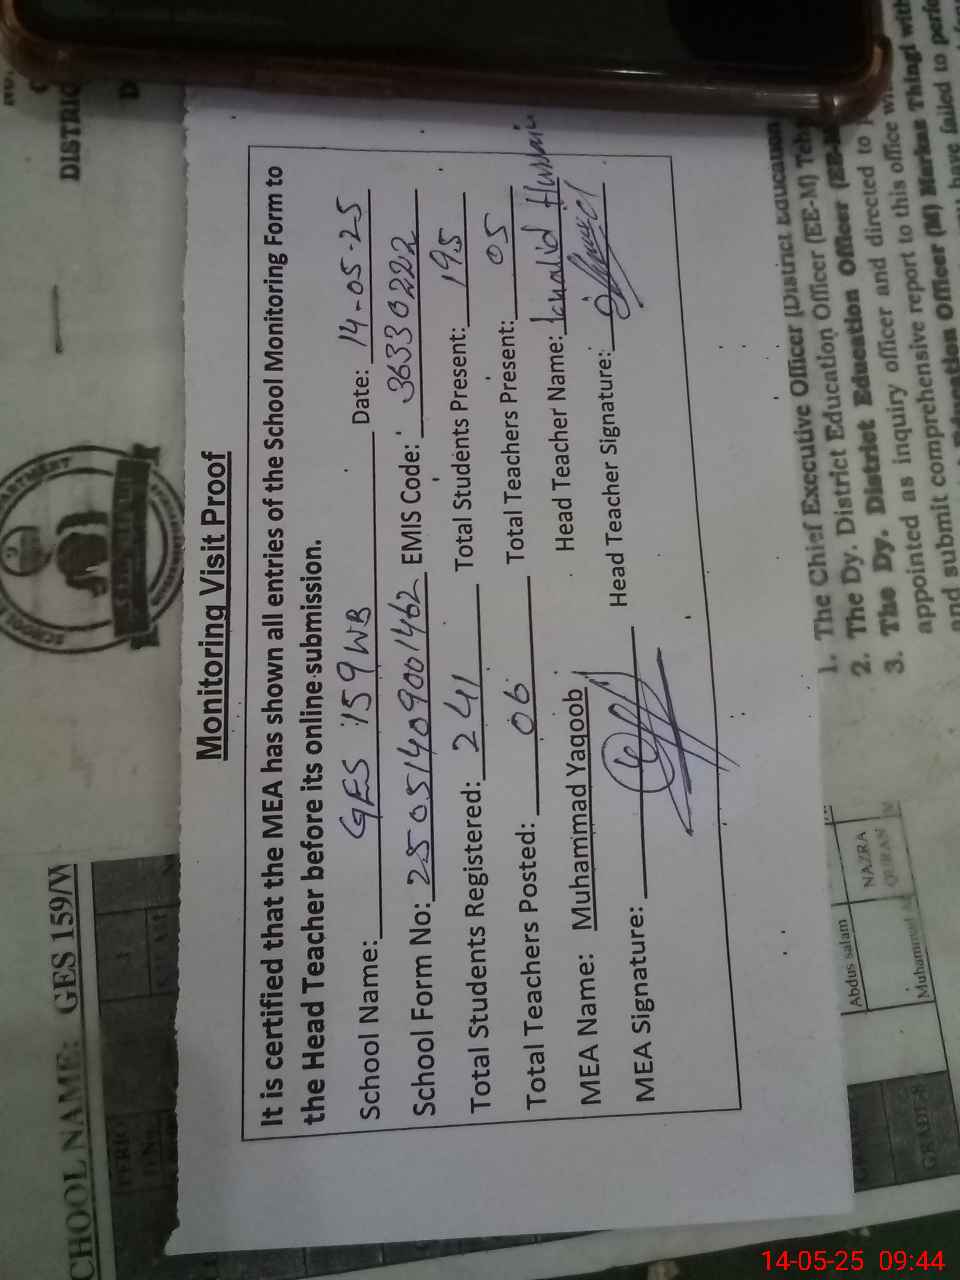 Monitoring Visit Proof
It is certified that the MEA has shown all entries of the School Monitoring Form to
the Head Teacher before its online submission.
School Name: GES 159WB Date: 14-05-25
School Form No: 250514090014 62 EMIS Code: 36330222
Total Students Registered: 241 Total Students Present: 195
Total Teachers Posted: 06 Total Teachers Present: 05
MEA Name: Muhammad Yaqoob Head Teacher Name: Khalid Hussain
MEA Signature: Head Teacher Signature:
CHOOL NAME: GES 159/W
DISTRIC
1. The Chief Executive Officer (District Education
2. The Dy. District Education Officer (EE-M) Teh
3. The Dy. District Education Officer
appointed as inquiry officer and directed to
and submit comprehensive report to this office
Education Officer (M) Markaz Thingi with
have failed to perfo
Abdus salam
NAZRA
QURAN
Muhammad
GRADE 8
14-05-25 09:44